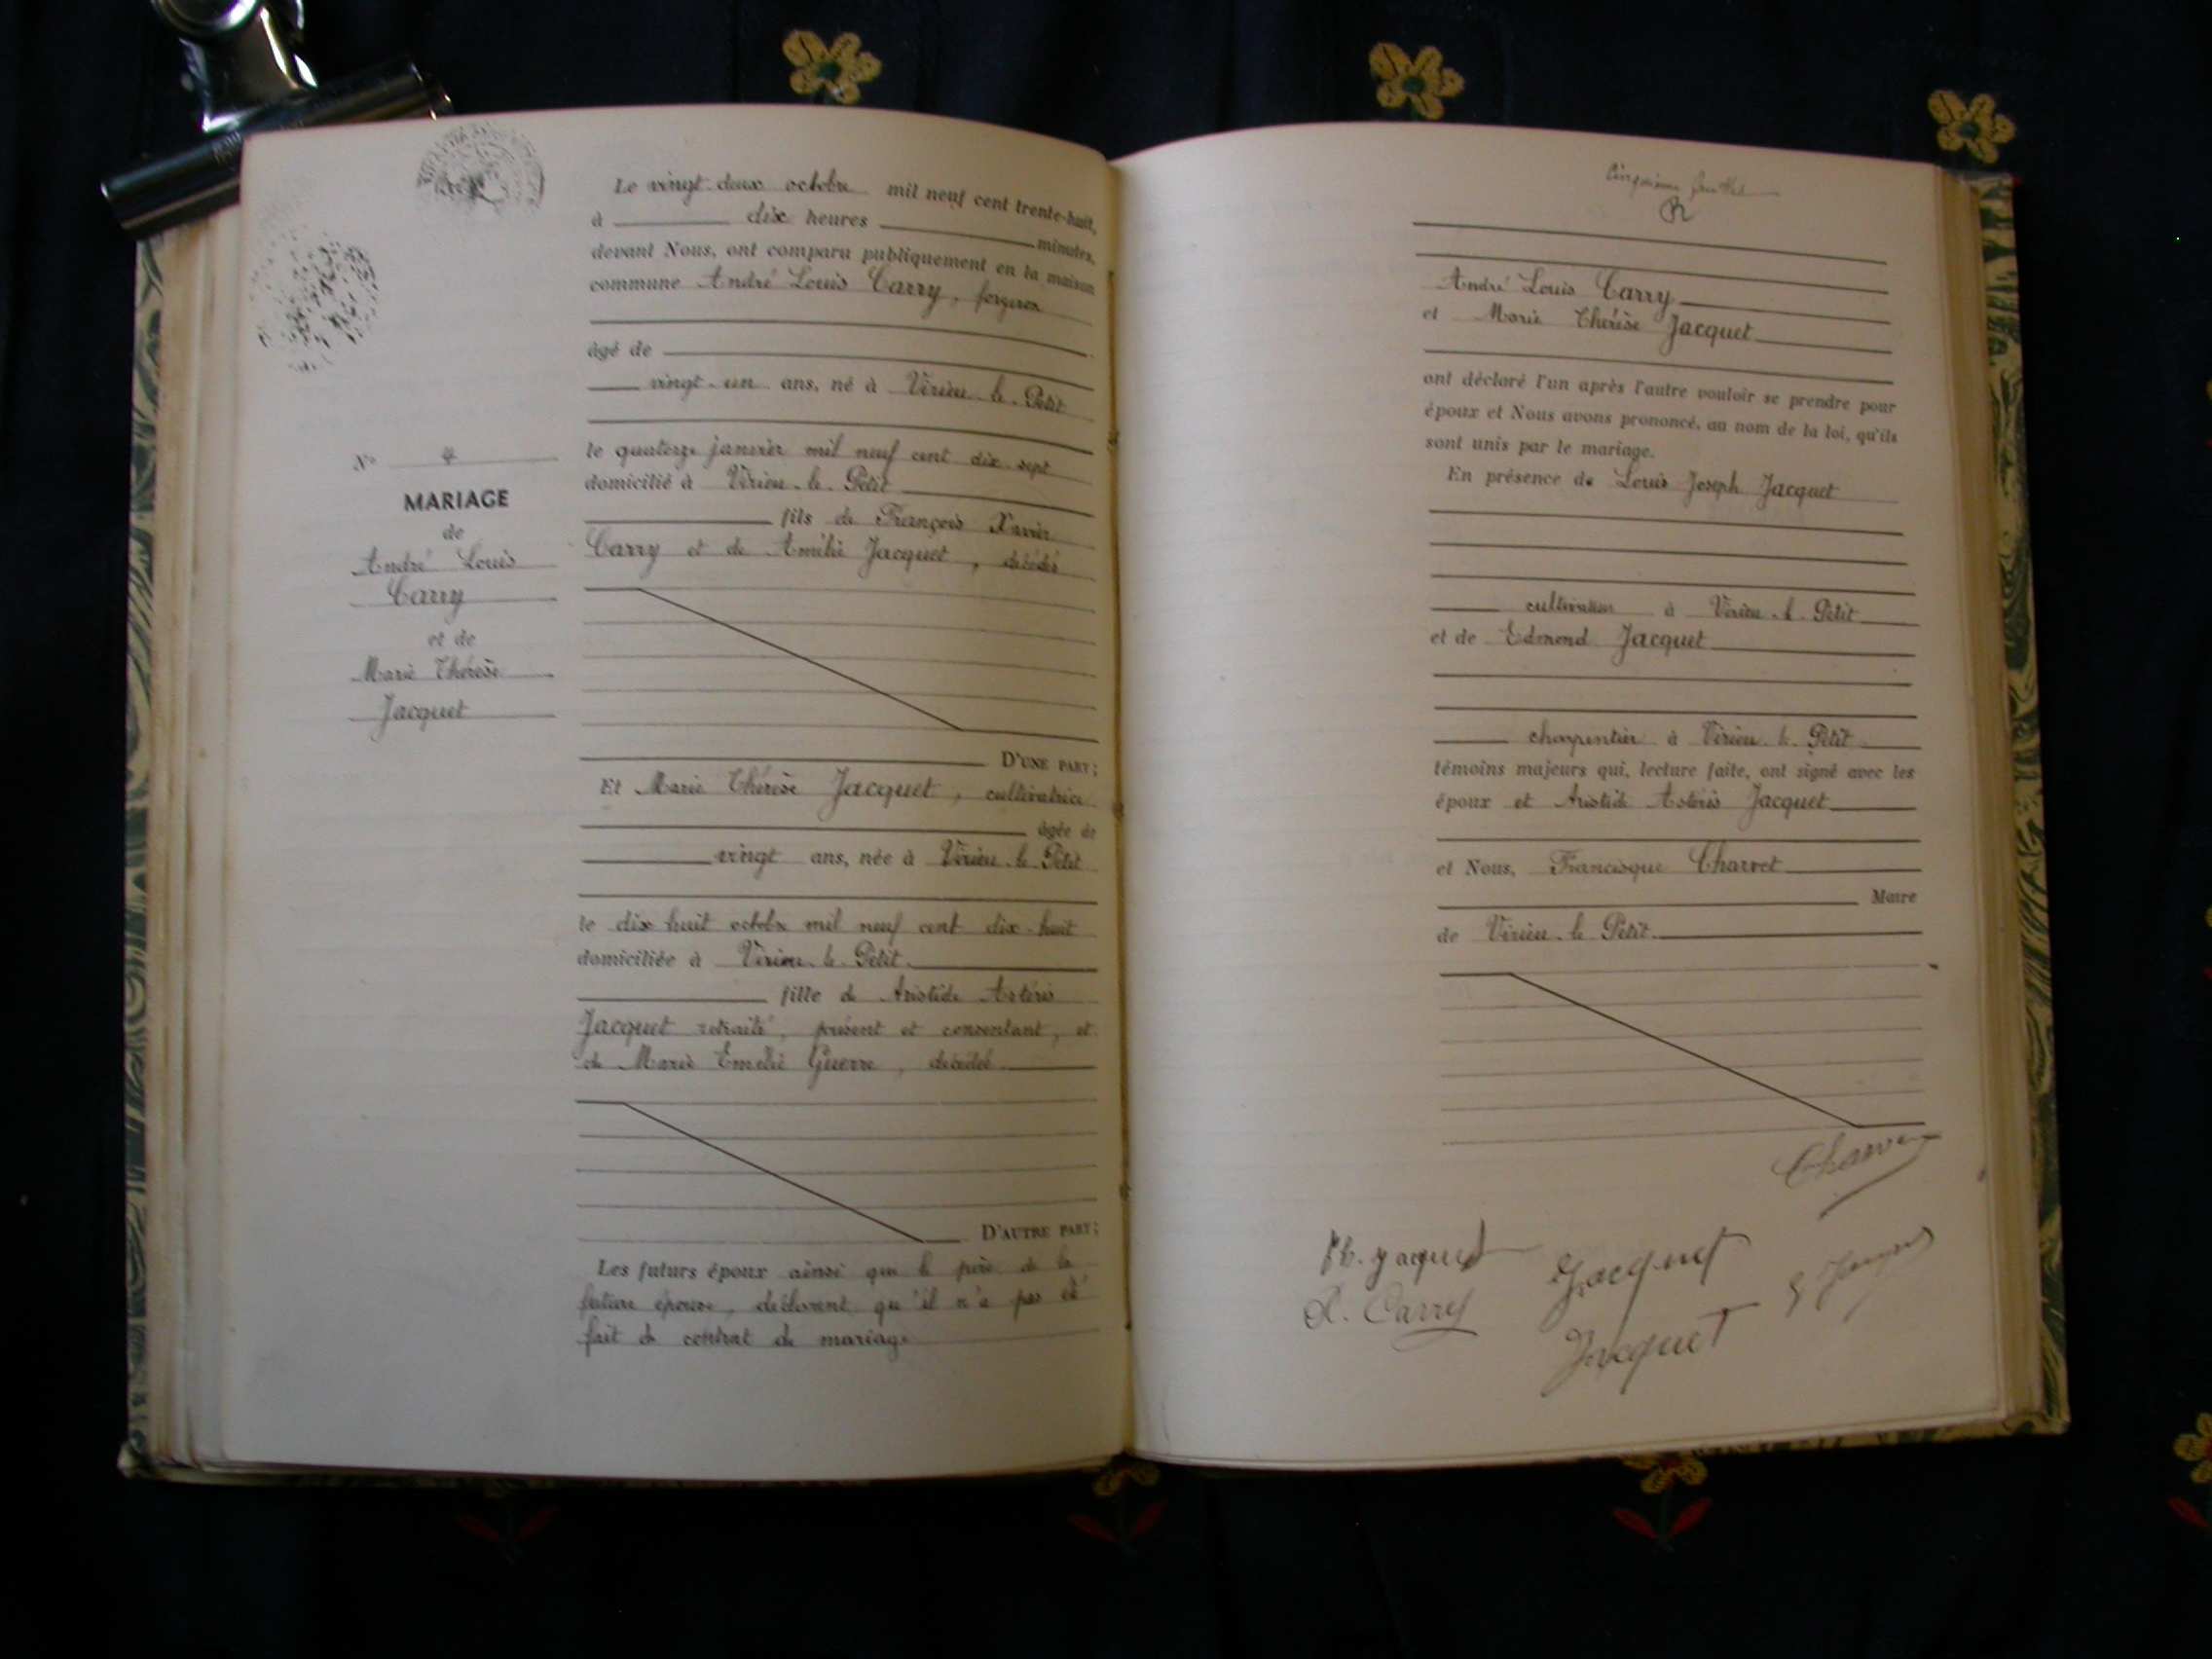 Le vingt-deux octobre mil neuf cent trente-huit,
à dix heures minutes,
devant Nous, ont comparu publiquement en la maison
commune André Louis Carry, forgeron
âgé de
vingt-un ans, né à Virieu-le-Petit
le quatorze janvier mil neuf cent dix-sept
domicilié à Virieu-le-Petit
fils de François Xavier
Carry et de Amélie Jacquet, décédés
D'UNE PART;
N° 4
MARIAGE
de
André Louis
Carry
et de
Marie Thérèse
Jacquet
Et Marie Thérèse Jacquet, cultivatrice
âgée de
vingt ans, née à Virieu-le-Petit
le dix huit octobre mil neuf cent dix-huit
domiciliée à Virieu-le-Petit
fille de Aristide Astéris
Jacquet retraité, présent et consentant, et
de Marie Emélie Guerre, décédée
D'AUTRE PART;
Les futurs époux ainsi que le père de la
future épouse, déclarent qu'il n'a pas été
fait de contrat de mariage
André Louis Carry
et Marie Thérèse Jacquet
ont déclaré l'un après l'autre vouloir se prendre pour
époux et Nous avons prononcé, au nom de la loi, qu'ils
sont unis par le mariage.
En présence de Louis Joseph Jacquet
cultivateur à Virieu-le-Petit
et de Edmond Jacquet
charpentier à Virieu-le-Petit
témoins majeurs qui, lecture faite, ont signé avec les
époux et Aristide Astéris Jacquet
et Nous, Francisque Charvet
Maire
de Virieu-le-Petit
Charvet
Th. Jacquet
Jacquet
A. Carry
Jacquet